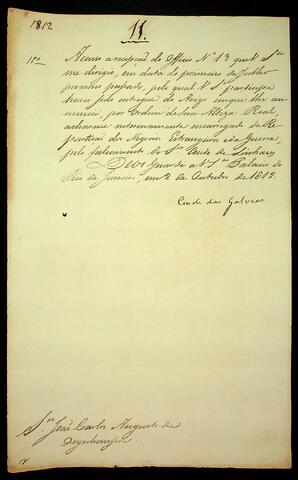 1812
11.
N.º
Accuso a recepção do Officio Nº 13 que V. S.ª
me dirigio, em data do primeiro de Julho
proximo passado, pelo qual V. S.ª participa
haver sido entregue do Avizo em que lhe an-
nunciei, por Ordem de Sua Alteza Real,
achar-me interinamente encarregado da Re-
partição dos Negocios Estrangeiros e da Guerra,
pelo falecimento do Snr. Conde de Linhares
Deos Guarde a V. S.ª Palacio do
Rio de Janeiro, em 2 de Outubro de 1812.
Conde das Galveas
Snr. João Carlos Augusto de
Oeynhausen